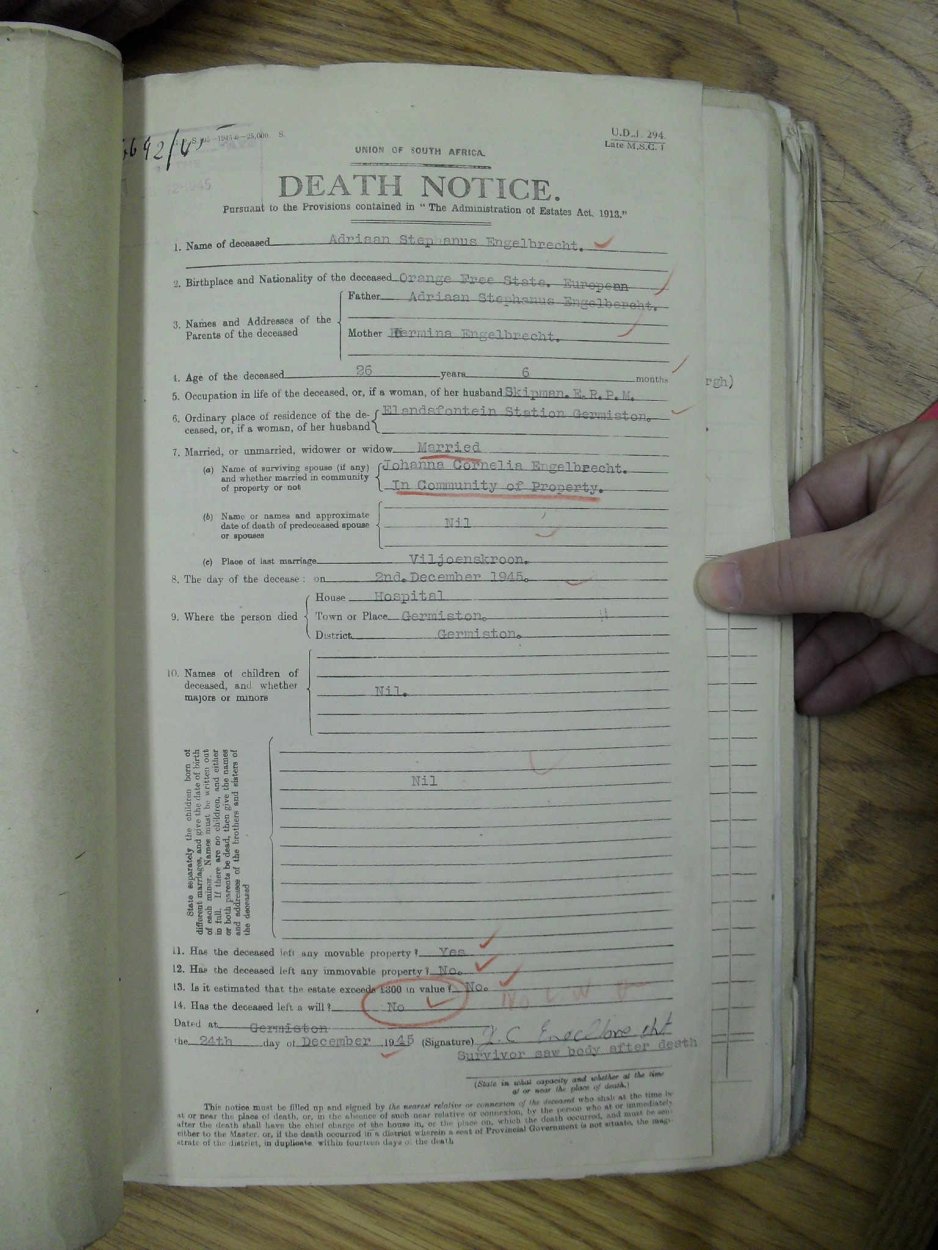 6692/45
S. 1945-6—25,000. S.
U.D.J. 294.
Late M.S.C. 1
UNION OF SOUTH AFRICA.
2·1945
DEATH NOTICE.
Pursuant to the Provisions contained in "The Administration of Estates Act, 1913."
1. Name of deceased Adriaan Stephanus Engelbrecht.
2. Birthplace and Nationality of the deceased Orange Free State. European
3. Names and Addresses of the Parents of the deceased
Father Adriaan Stephanus Engelbercht.
Mother Hermina Engelbrecht.
4. Age of the deceased 26 years 6 months
rgh)
5. Occupation in life of the deceased, or, if a woman, of her husband Skipman. E.R.P.M.
6. Ordinary place of residence of the de-
ceased, or, if a woman, of her husband
Elandsfontein Station Germiston.
7. Married, or unmarried, widower or widow Married
(a) Name of surviving spouse (if any)
and whether married in community
of property or not
Johanna Cornelia Engelbrecht.
In Community of Property.
(b) Name or names and approximate
date of death of predeceased spouse
or spouses
Nil
(c) Place of last marriage Viljoenskroon.
8. The day of the decease: on 2nd. December 1945.
9. Where the person died
House Hospital
Town or Place Germiston.
District Germiston.
10. Names of children of
deceased, and whether
majors or minors
Nil.
State separately the children born of
different marriages, and give the date of birth
of each minor. Names must be written out
in full. If there are no children, and either
or both parents be dead, then give the names
and addresses of the brothers and sisters of
the deceased
Nil
11. Has the deceased left any movable property? Yes
12. Has the deceased left any immovable property? No.
13. Is it estimated that the estate exceeds £300 in value? No.
14. Has the deceased left a will? No
Dated at Germiston
the 24th day of December 1945 (Signature) J.C Engelbrecht
Survivor saw body after death
(State in what capacity and whether at the time
at or near the place of death.)
This notice must be filled up and signed by the nearest relative or connexion of the deceased who shall at the time be
at or near the place of death, or, in the absence of such near relative or connexion, by the person who at or immediately
after the death shall have the chief charge of the house in, or the place on, which the death occurred, and must be sent
either to the Master, or, if the death occurred in a district wherein a seat of Provincial Government is not situate, the magi-
strate of the district, in duplicate within fourteen days of the death